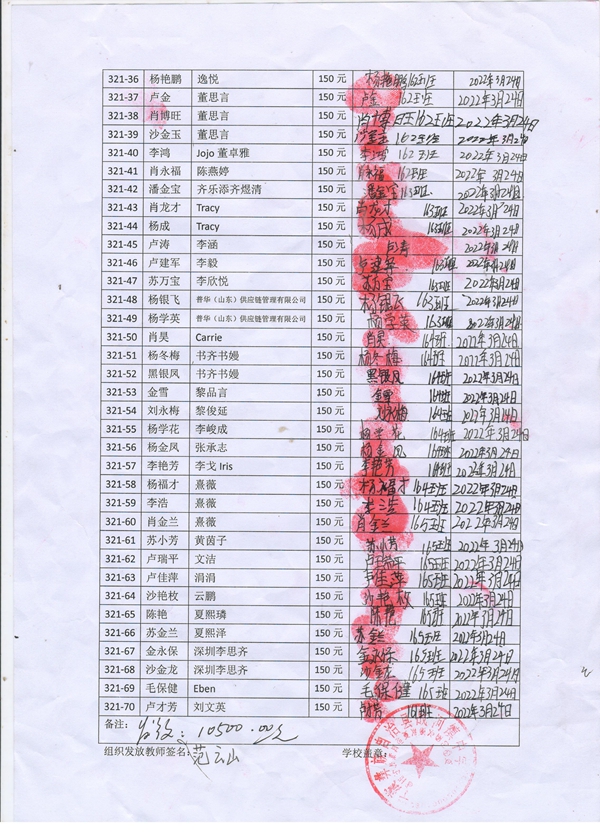 321-36 杨艳鹏 逸悦 150 元 杨艳鹏 162班 2022年3月24日
321-37 卢金 董思言 150 元 卢金 162班 2022年3月24日
321-38 肖博旺 董思言 150 元 肖博旺 162班 2022年3月24日
321-39 沙金玉 董思言 150 元 沙金玉 162班 2022年3月24日
321-40 李鸿 Jojo 董卓雅 150 元 李鸿 162班 2022年3月24日
321-41 肖永福 陈燕婷 150 元 162班 2022年3月24日
321-42 潘金宝 齐乐添齐煜清 150 元 潘金宝 163班 2022年3月24日
321-43 肖龙才 Tracy 150 元 肖龙才 163班 2022年3月24日
321-44 杨成 Tracy 150 元 杨成 163班 2022年3月24日
321-45 卢涛 李涵 150 元 2022年3月24日
321-46 卢建军 李毅 150 元 卢建军 163班 2022年3月24日
321-47 苏万宝 李欣悦 150 元 苏万宝 163班 2022年3月24日
321-48 杨银飞 普华（山东）供应链管理有限公司 150 元 杨银飞 163班 2022年3月24日
321-49 杨学英 普华（山东）供应链管理有限公司 150 元 杨学英 163班 2022年3月24日
321-50 肖昊 Carrie 150 元 肖昊 164班 2022年3月24日
321-51 杨冬梅 书齐书嫚 150 元 杨冬梅 164班 2022年3月24日
321-52 黑银凤 书齐书嫚 150 元 黑银凤 164班 2022年3月24日
321-53 金雪 黎品言 150 元 金雪 164班 2022年3月24日
321-54 刘永梅 黎俊延 150 元 刘永梅 164班 2022年3月24日
321-55 杨学花 李峻成 150 元 杨学花 164班 2022年3月24日
321-56 杨金凤 张承志 150 元 杨金凤 164班 2022年3月24日
321-57 李艳芳 李戈 Iris 150 元 李艳芳 164班 2022年3月24日
321-58 杨福才 熹薇 150 元 杨福才 164班 2022年3月24日
321-59 李浩 熹薇 150 元 李浩 164班 2022年3月24日
321-60 肖金兰 熹薇 150 元 肖金兰 165班 2022年3月24日
321-61 苏小芳 黄茵子 150 元 苏小芳 165班 2022年3月24日
321-62 卢瑞平 文洁 150 元 卢瑞平 165班 2022年3月24日
321-63 卢佳萍 涓涓 150 元 卢佳萍 165班 2022年3月24日
321-64 沙艳枚 云鹏 150 元 沙艳枚 165班 2022年3月24日
321-65 陈艳 夏熙璘 150 元 陈艳 165班 2022年3月24日
321-66 苏金兰 夏熙泽 150 元 苏金兰 165班 2022年3月24日
321-67 金永保 深圳李思齐 150 元 金永保 165班 2022年3月24日
321-68 沙金龙 深圳李思齐 150 元 沙金龙 165班 2022年3月24日
321-69 毛保健 Eben 150 元 毛保健 165班 2022年3月24日
321-70 卢才芳 刘文英 150 元 161班 2022年3月24日
备注： 10500.00元
组织发放教师签名： 范云山 学校盖章：